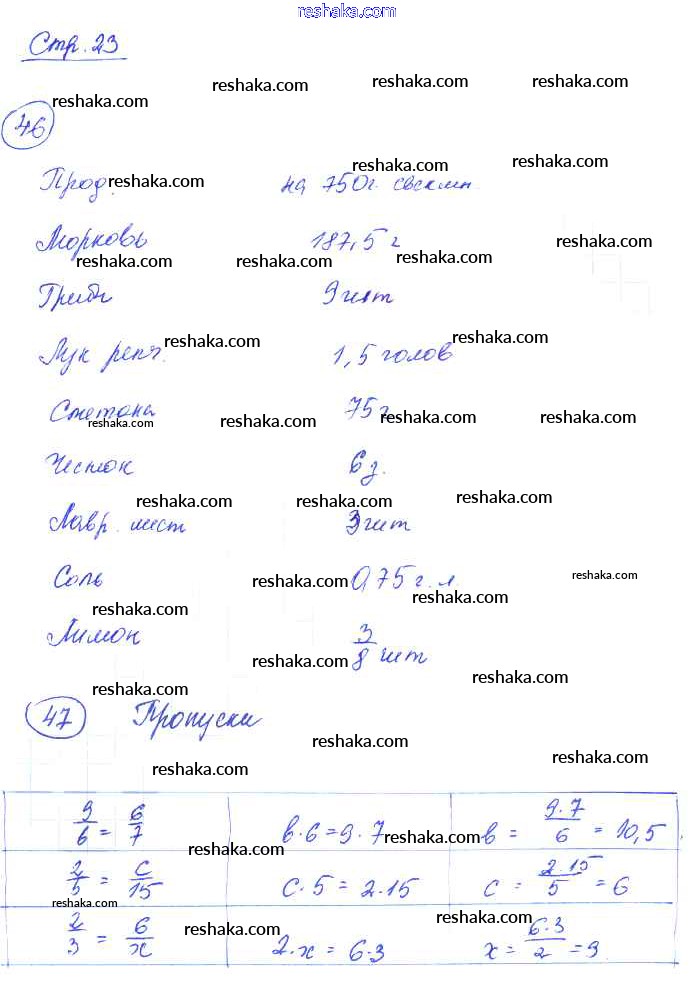 reshaka.com
Стр. 23
reshaka.com reshaka.com reshaka.com reshaka.com
46
reshaka.com reshaka.com
Прод. reshaka.com на 750г. свеклы
Морковь 187,5 г reshaka.com
reshaka.com reshaka.com reshaka.com
Грибы 9 шт
reshaka.com reshaka.com
Лук репч. 1,5 голов
Сметана 75 г
reshaka.com reshaka.com reshaka.com reshaka.com
Чеснок 6 д.
reshaka.com reshaka.com reshaka.com
Лавр. лист 3 шт
reshaka.com reshaka.com
Соль 0,75 г. л
reshaka.com
Лимон 3/8 шт
reshaka.com reshaka.com
reshaka.com
47 Пропуски
reshaka.com
reshaka.com
9/6 = 6/7 в·6=9·7 в = 9·7/6 = 10,5
reshaka.com reshaka.com
2/5 = с/15 с·5=2·15 с = 2·15/5 = 6
reshaka.com
reshaka.com reshaka.com
2/3 = 6/х 2·х = 6·3 х = 6·3/2 = 9